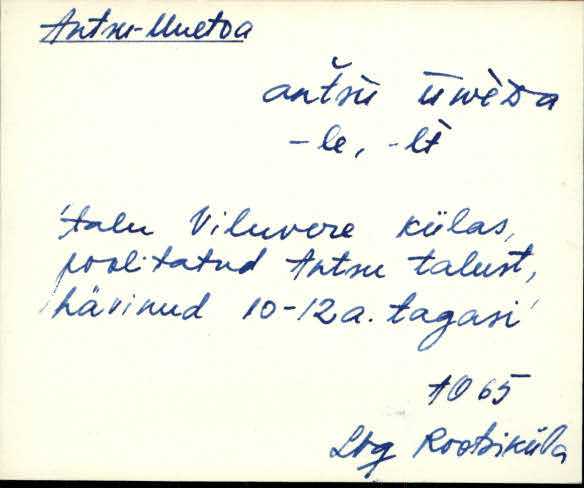 Antsu-Uuetoa
antsu ūwèDa
-le, -lt
'talu Viluvere külas,
poolitatud Antsu talust,
hävinud 10-12 a. tagasi'
1965
Rootsiküla